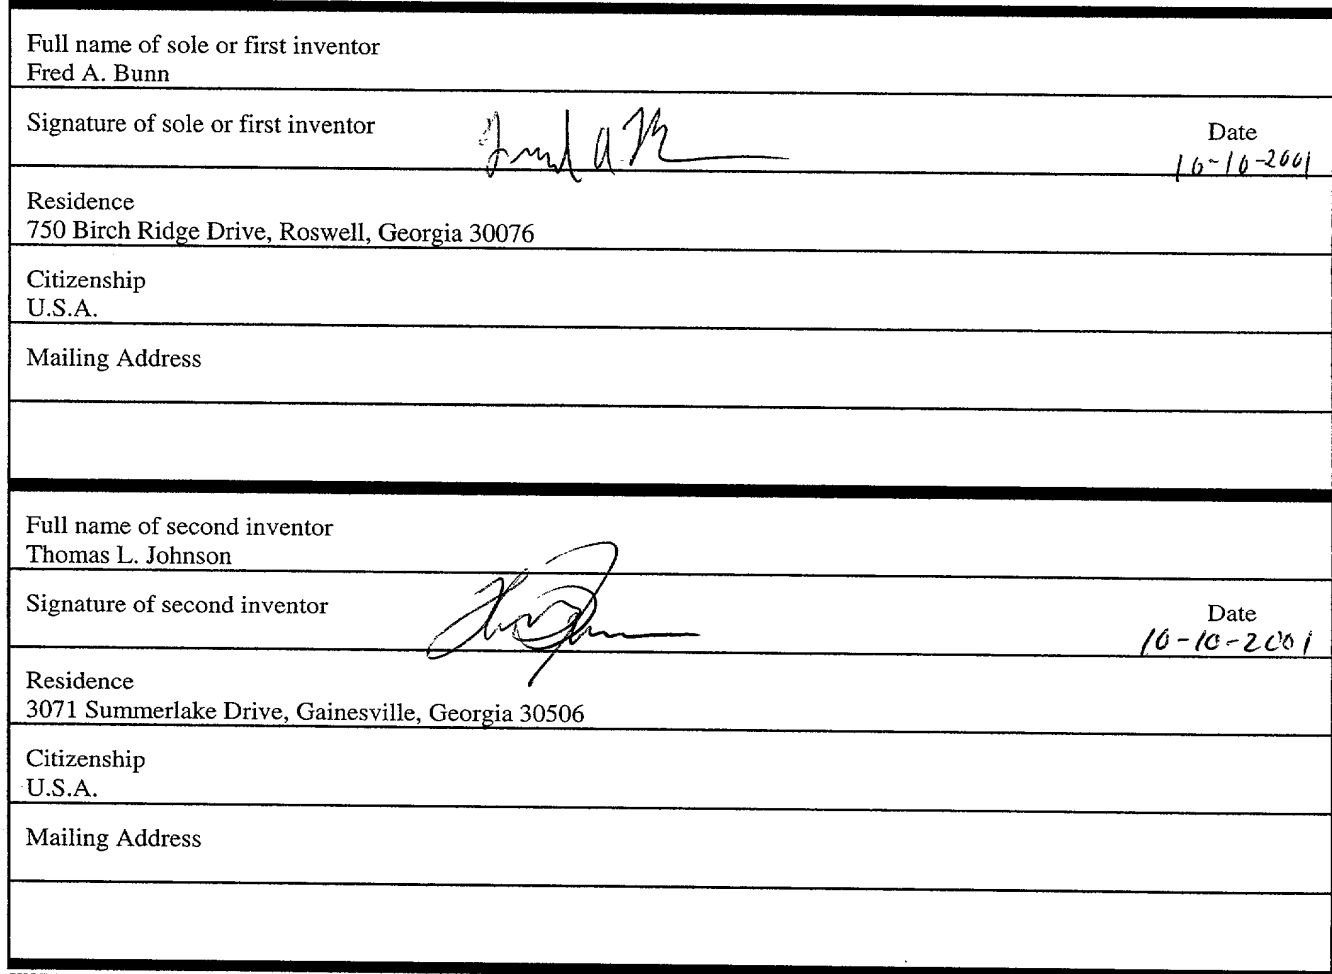 Full name of sole or first inventor
Fred A. Bunn
Signature of sole or first inventor
Date
10-10-2001
Residence
750 Birch Ridge Drive, Roswell, Georgia 30076
Citizenship
U.S.A.
Mailing Address
Full name of second inventor
Thomas L. Johnson
Signature of second inventor
Date
10-10-2001
Residence
3071 Summerlake Drive, Gainesville, Georgia 30506
Citizenship
U.S.A.
Mailing Address